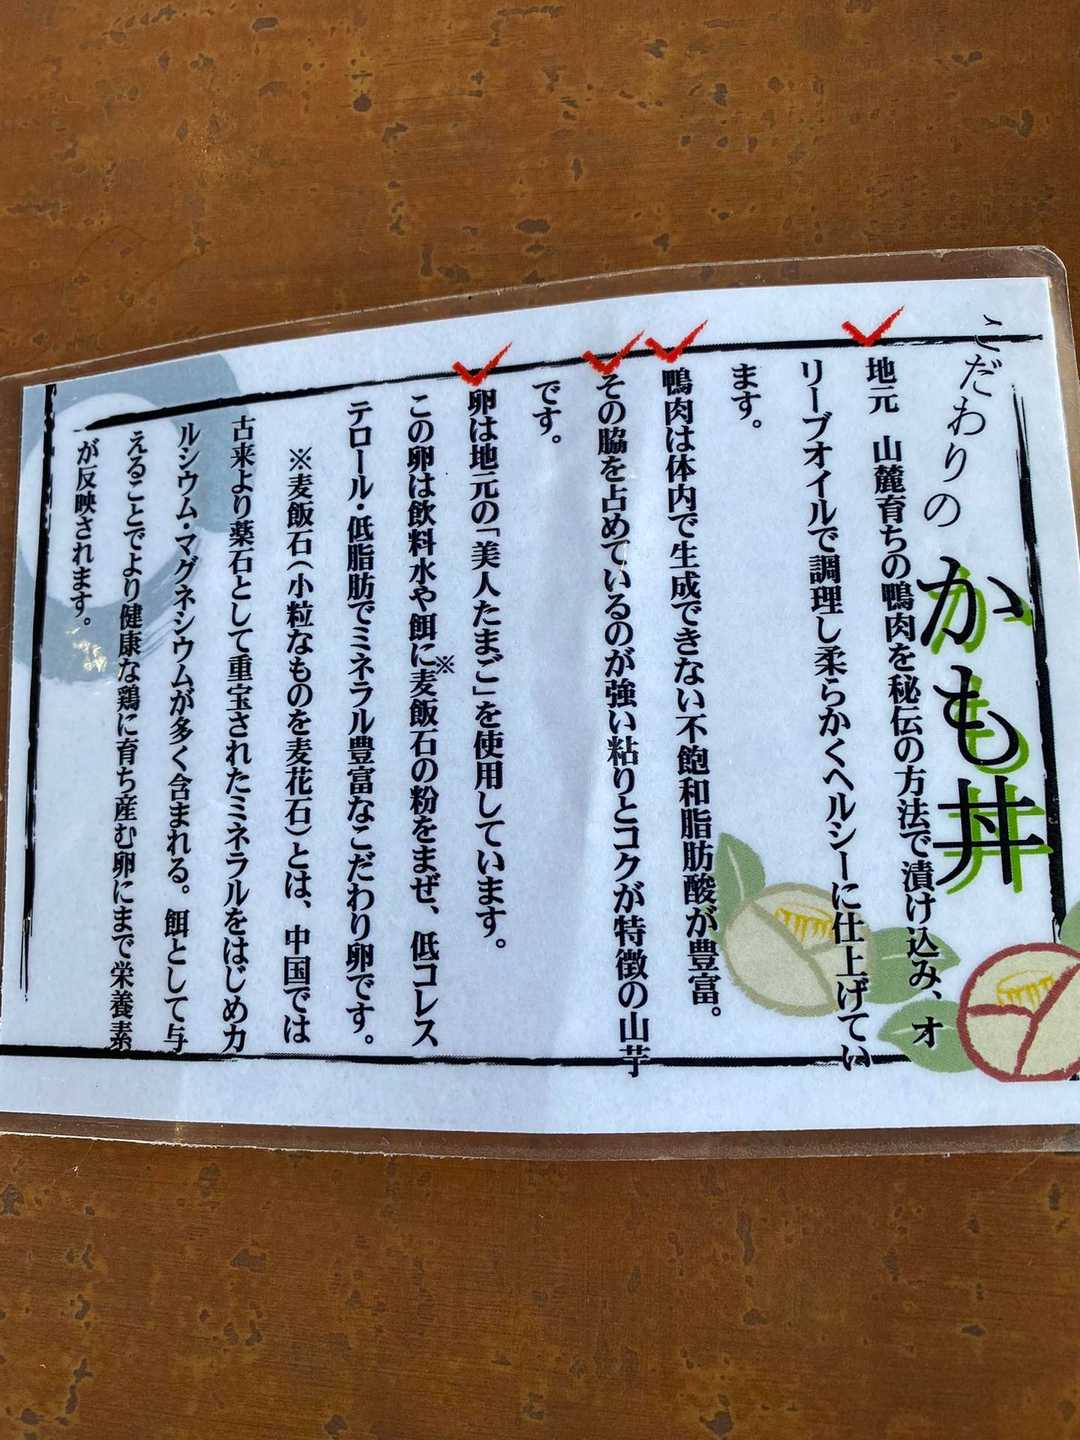 こだわりの かも丼
地元　山麓育ちの鴨肉を秘伝の方法で漬け込み、オ
リーブオイルで調理し柔らかくヘルシーに仕上げてい
ます。
鴨肉は体内で生成できない不飽和脂肪酸が豊富。
その脇を占めているのが強い粘りとコクが特徴の山芋
です。
卵は地元の「美人たまご」を使用しています。
この卵は飲料水や餌に※麦飯石の粉をまぜ、低コレス
テロール・低脂肪でミネラル豊富なこだわり卵です。
※麦飯石(小粒なものを麦花石)とは、中国では
古来より薬石として重宝されたミネラルをはじめカ
ルシウム・マグネシウムが多く含まれる。餌として与
えることでより健康な鶏に育ち産む卵にまで栄養素
が反映されます。